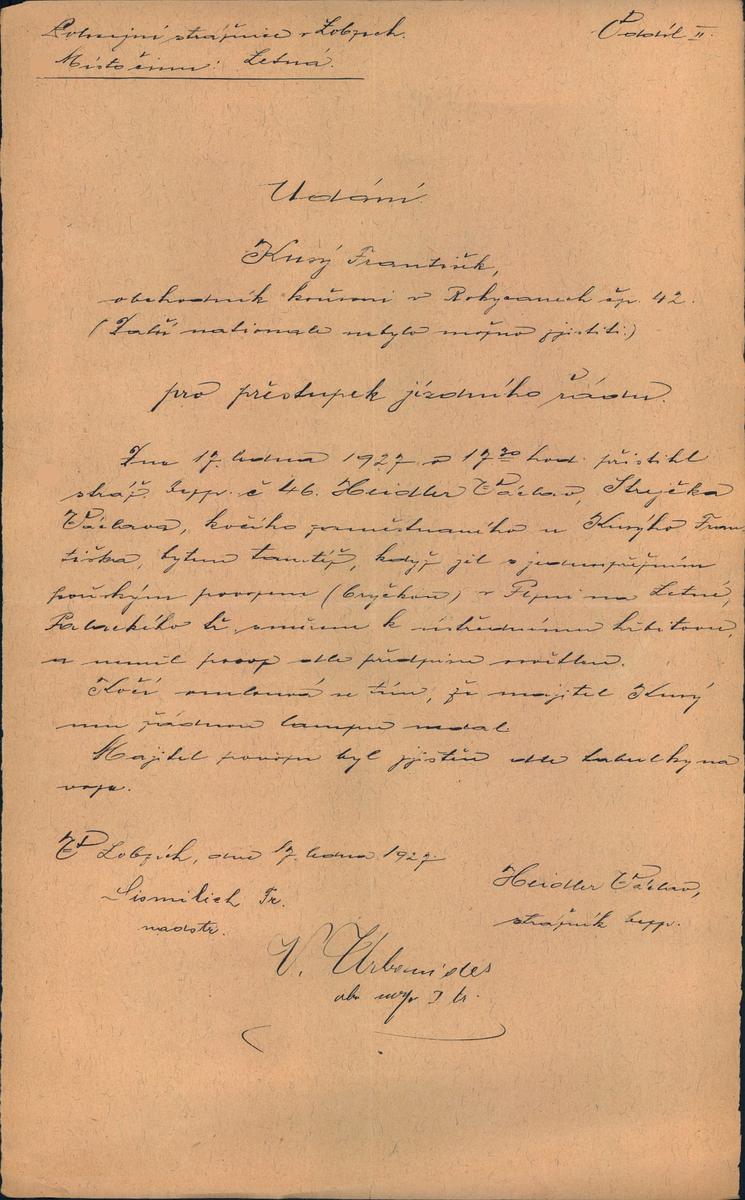 Policejní strážnice v Lobzích.
Oddíl II.
Místo činu: Letná.
Udání.
Kusý František,
obchodník koňmi v Rokycanech čp. 42.
(Další nationale nebylo možno zjistiti.)
pro přestupek jízdního řádu.
Dne 17. ledna 1927 o 17 30 hod. přistihl
stráž. č 46. Heidler Václav, Strejčka
Václava, kočího zaměstnaného u Kusýho Fran-
tiška, bytem tamtéž, když jel s jednospřežním
koňským povozem (bryčkou) v Plzni na Letné,
Palackého tř. směrem k ústřednímu hřbitovu,
a neměl povoz dle předpisu osvětlen.
Kočí omlouvá se tím, že majitel Kusý
mu žádnou lampu nedal.
Majitel povozu byl zjištěn dle tabulky na
voze.
V Lobzích, dne 17. ledna 1927.
Heidler Václav,
Fr.
nadstr.
strážník
V. Urbanides